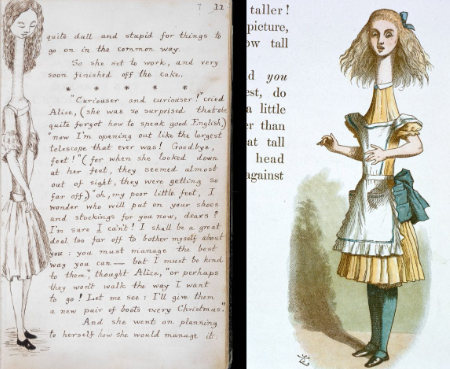 7 22
quite dull and stupid for things to
go on in the common way.
So she set to work, and very
soon finished off the cake.
* * * * * *
"Curiouser and curiouser!" cried
Alice, (she was so surprised that she
quite forgot how to speak good English,)
"now I'm opening out like the largest
telescope that ever was! Goodbye,
feet!" (for when she looked down
at her feet, they seemed almost
out of sight, they were getting so
far off,) "oh, my poor little feet, I
wonder who will put on your shoes
and stockings for you now, dears?
I'm sure I can't! I shall be a great
deal too far off to bother myself about
you: you must manage the best
way you can — but I must be kind
to them", thought Alice, "or perhaps
they won't walk the way I want
to go! Let me see: I'll give them
a new pair of boots every Christmas."
And she went on planning
to herself how she would manage it:
taller!
picture,
ow tall
d you
est, do
a little
er than
at tall
head
against